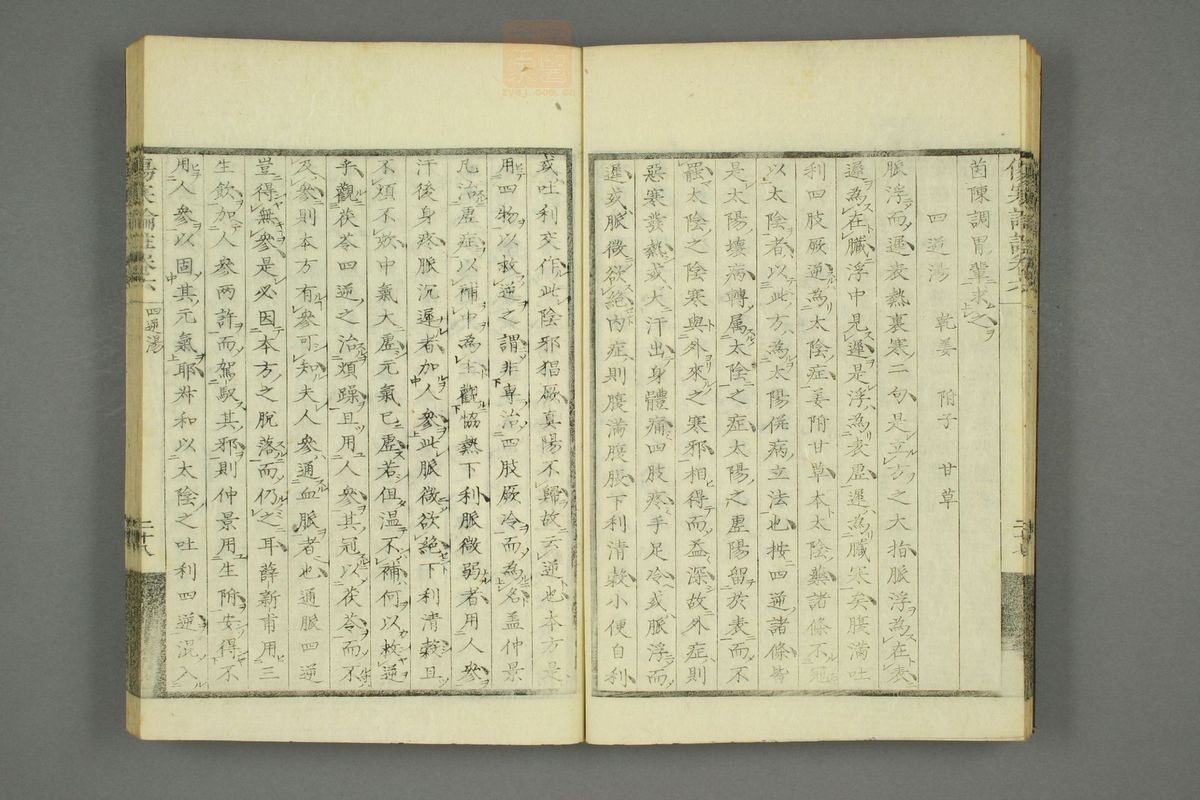 茵陳調胃輩求之
四逆湯 乾姜 附子 甘草
脈浮而遲表熱裏寒二句是立方之大指脈浮為在表
遲為在臟浮中見遲是浮為表虛遲為臟寒矣腹滿吐
利四肢厥逆為太陰症姜附甘草本太陰藥諸條不冠
以太陰者以此方為太陽併病立法也按四逆諸條皆
是太陽壞病轉属太陰之症太陽之虛陽留於表而不
罷太陰之陰寒與外來之寒邪相得而益深故外症則
惡寒發熱或大汗出身體痛四肢疼手足冷或脈浮而
遲或脈微欲絕內症則腹滿腹脹下利清穀小便自利
或吐利交作此陰邪猖厥真陽不歸故云逆也本方是
用四物以救逆之謂非專治四肢厥冷而為名盖仲景
凡治虛症以補中為主觀協熱下利脈微弱者用人參
汗後身疼脈沉遲者加人參此脈微欲絕下利清穀且
不煩不欬中氣大虛元氣已虛若但温不補何以救逆
乎觀茯苓四逆之治煩躁且用人參其冠以茯苓而不
及參則本方有參可知夫人參通血脈者也通脈四逆
豈得無參是必因本方之脫落而仍之耳薛新甫用三
生飲加人參两許而駕馭其邪則仲景用生附安得不
用人參以固其元氣耶叔和以太陰之吐利四逆混入
傷寒論註卷六
四逆湯
二十八